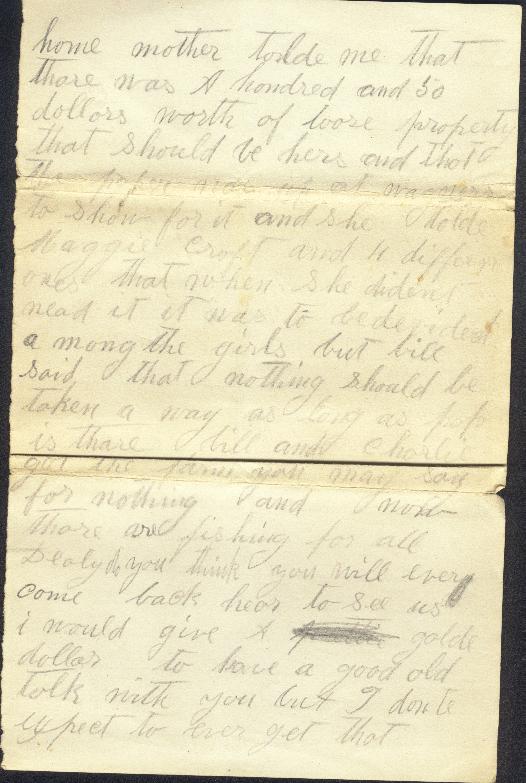 home mother tolde me that
thare was A hundred and 50
dollors worth of loose property
that should be hers and that
the paper was at
to show for it and she tolde
Maggie Croft and 4 differn
ones that when she dident
nead it it was to be devided
a mong the girls but bill
said that nothing should be
taken a way as long as pop
is thare bill and Charlie
got the farm you may say
for nothing and now
thare are fishing for all
Dealy do you think you will ever
come back hear to see us
i would give A golde
dollar to have a good old
tolk with you but I donte
expect to ever get that